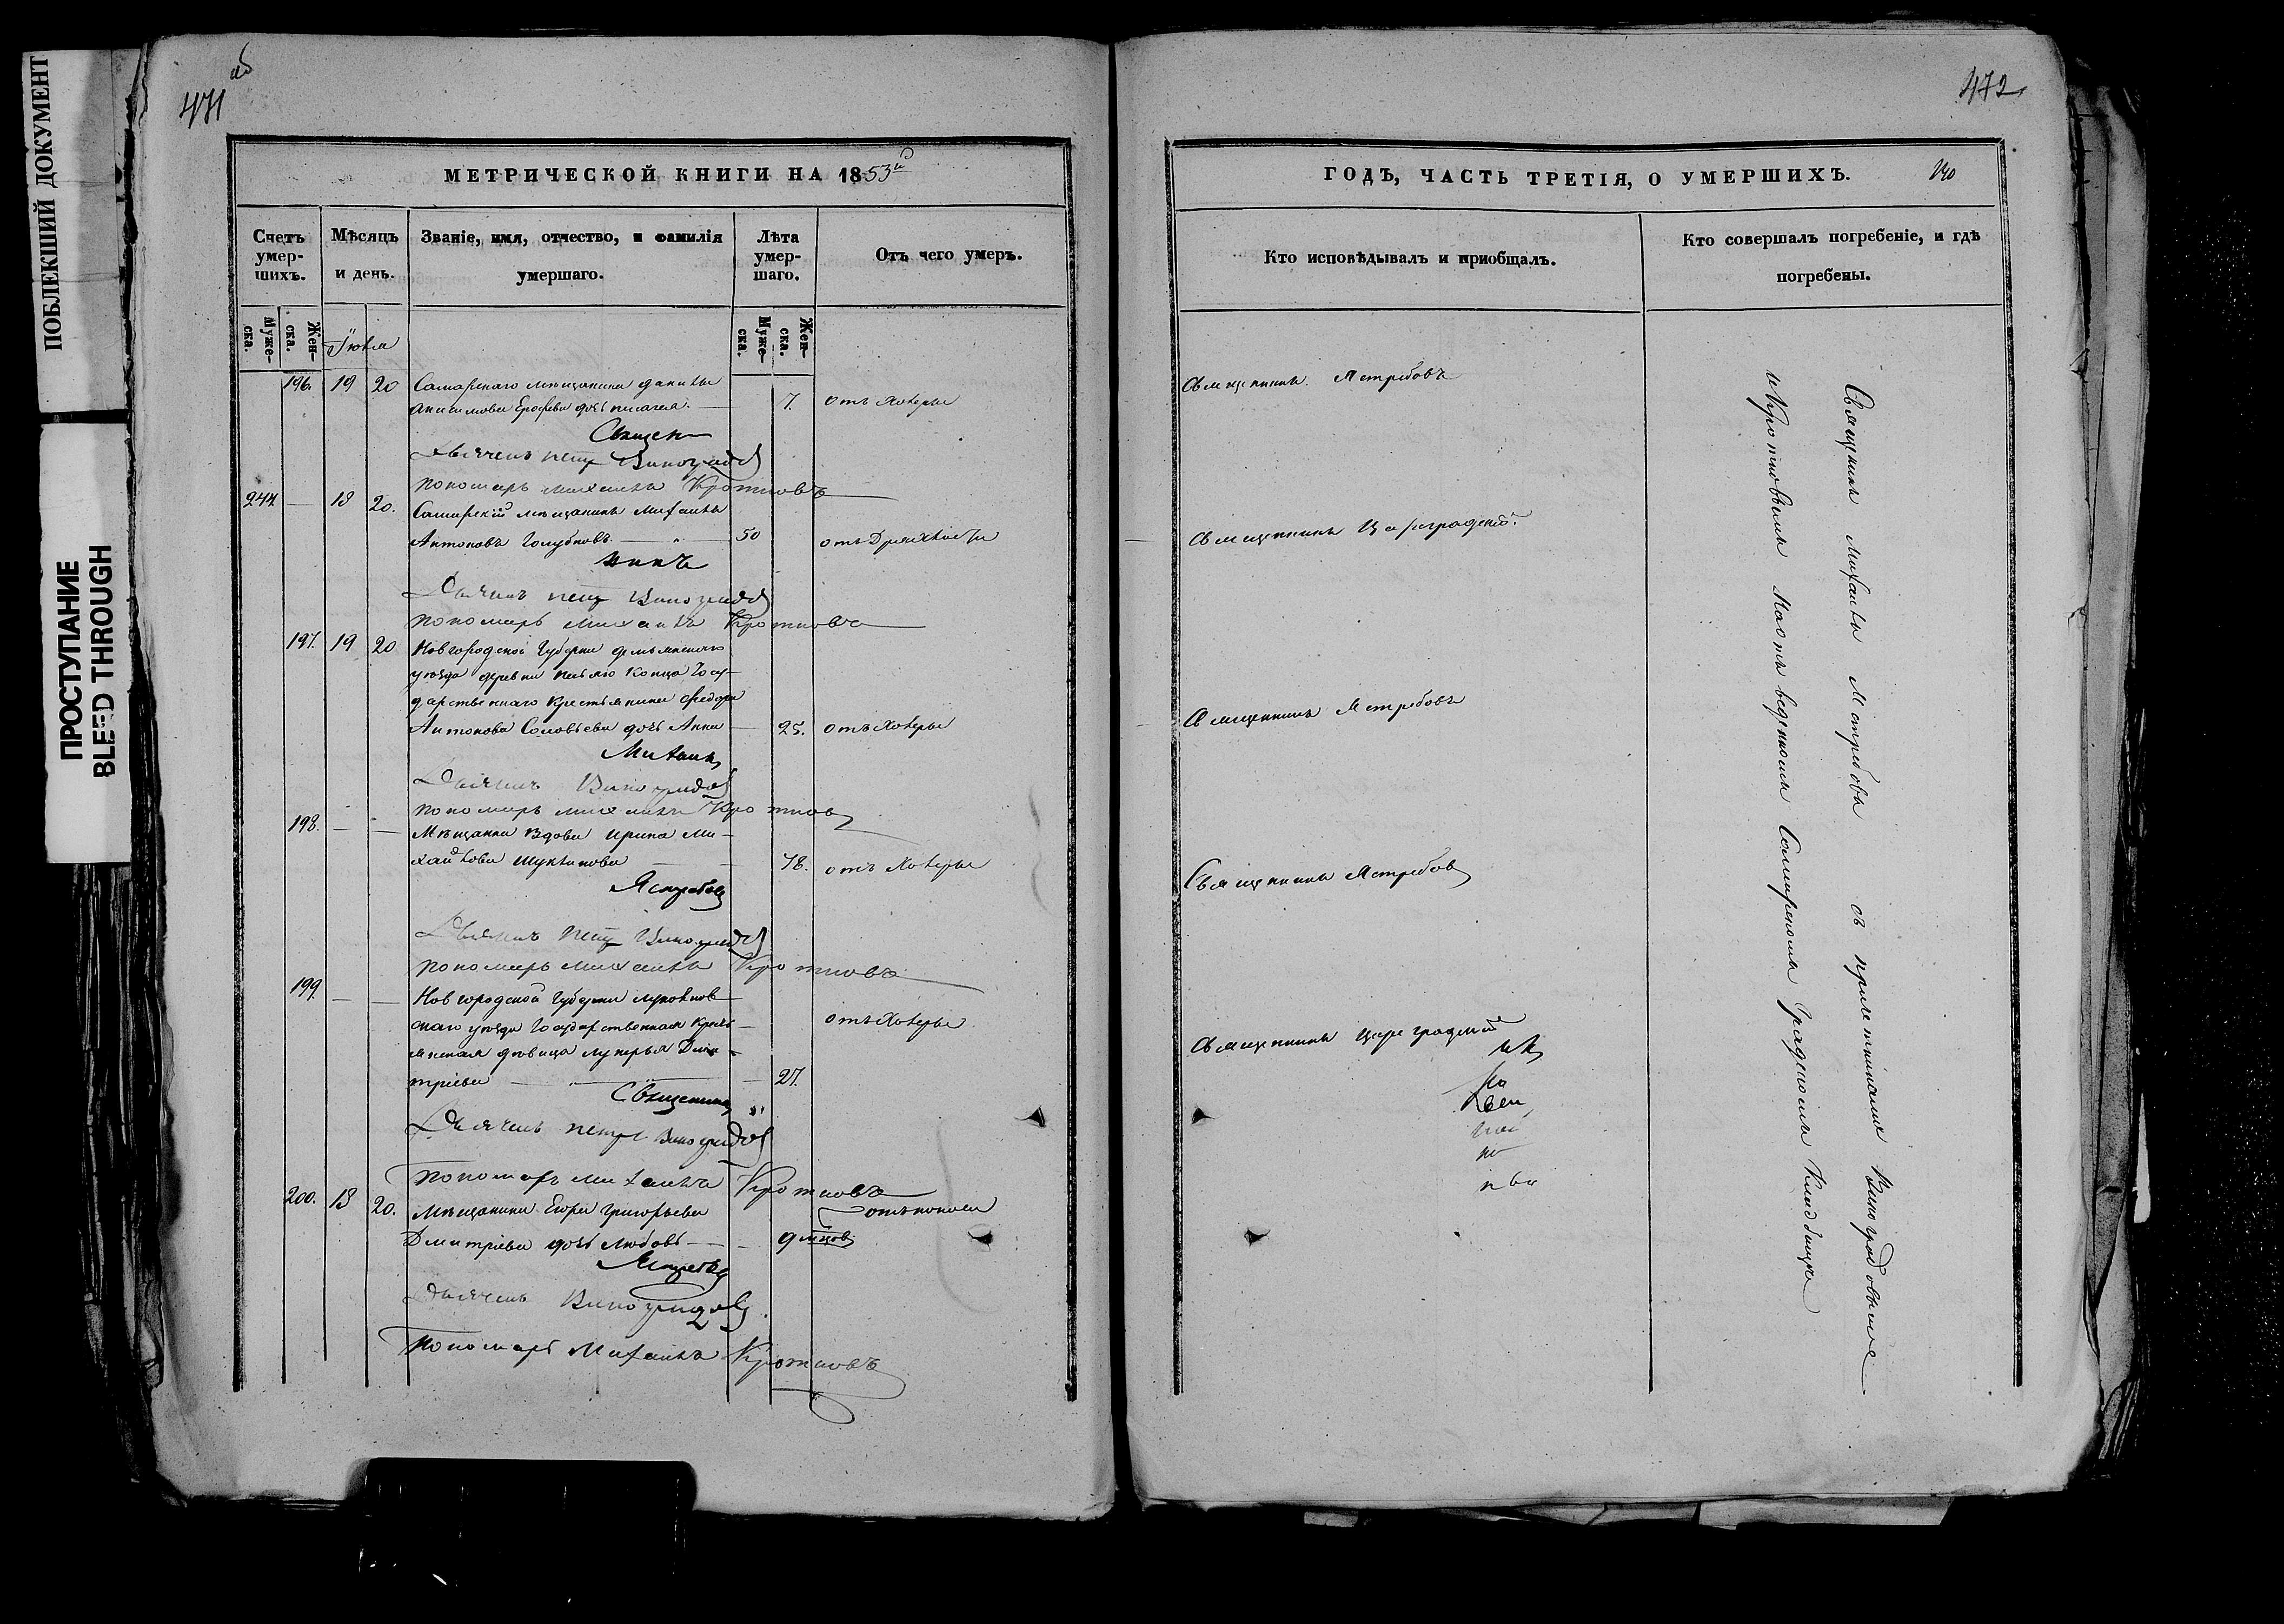 ПОБЛЕКШИЙ ДОКУМЕНТ
ПРОСТУПАНИЕ
BLEED THROUGH
об
471
МЕТРИЧЕСКОЙ КНИГИ НА 1853й
Счетъ умер-шихъ.
Мѣсяцъ и день.
Званіе, имя, отчество, и фамилія умершаго.
Лѣта умер-шаго.
Отъ чего умеръ.
Муже-ска.
Жен-ска.
Муже-ска.
Жен-ска.
Іюля
196. 19 20 Самарскаго мѣщанина Данилы
Анисимова Ерофеева дочь Пелагея. 7. отъ холеры
Священ
Дьячекъ Петръ Виноградовъ
Пономарь Михаилъ Кротковъ
244 — 18 20. Самарскій мѣщанинъ Михаилъ
Антоновъ Голубковъ. 50 отъ Дряхлости
никъ
Дьячекъ Петръ Виноградовъ
Пономарь Михаилъ Кротковъ
197. 19 20 Новгородской Губерніи Демьянскаго
уѣзда деревни Конца Госу-
дарственнаго крестьянина Федора
Антонова Соловьева дочь Анна 25. отъ холеры
Михаилъ
Дьячекъ Виноградовъ
Пономарь Михаилъ Кротковъ
198. — — Мѣщанка Вдова Ирина Ми-
хайлова 78. отъ холеры
Ястребовъ
Дьячекъ Петръ Виноградовъ
Пономарь Михаилъ Кротковъ
199. — — Новгородской Губерніи
скаго уѣзда Государственная кресть-
янская дѣвица Лукерья Дми- отъ холеры
тріева 27.
Священникъ
Дьячекъ Петръ Виноградовъ
Пономарь Михаилъ Кротковъ
200. 18 20. Мѣщанина Егора Григорьева отъ поноса
Дмитріева дочь Любовь 9 мѣсцовъ
Ястребовъ
Дьячекъ Виноградовъ
Пономарь Михаилъ Кротковъ
472
ГОДЪ, ЧАСТЬ ТРЕТІЯ, О УМЕРШИХЪ.
Кто исповѣдывалъ и приобщалъ.
Кто совершалъ погребеніе, и гдѣ погребены.
Священникъ Ястребовъ
Священникъ Цареградскій.
Священникъ Ястребовъ
Священникъ Ястребовъ
Священникъ Цареградскій
Священникъ Михаилъ Ястребовъ съ причетниками Виноградовымъ
и Кротковымъ на отведенномъ Самарскомъ Градскомъ Кладбищѣ